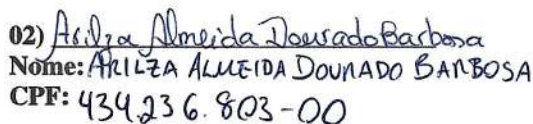 02) Arilza Almeida Dourado Barbosa
Nome: ARILZA ALMEIDA DOURADO BARBOSA
CPF: 434.236.803-00